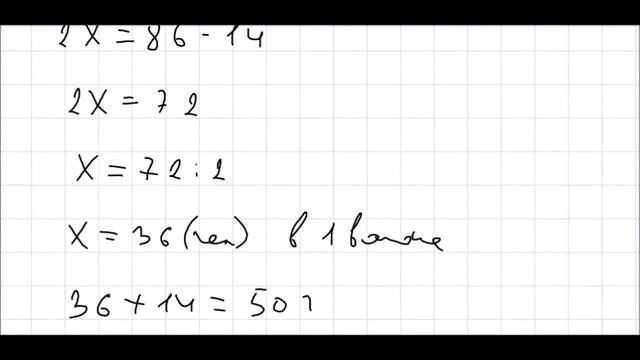 2x = 86 - 14
2x = 72
x = 72 : 2
x = 36 (чел) в 1 вагоне
36 + 14 = 50